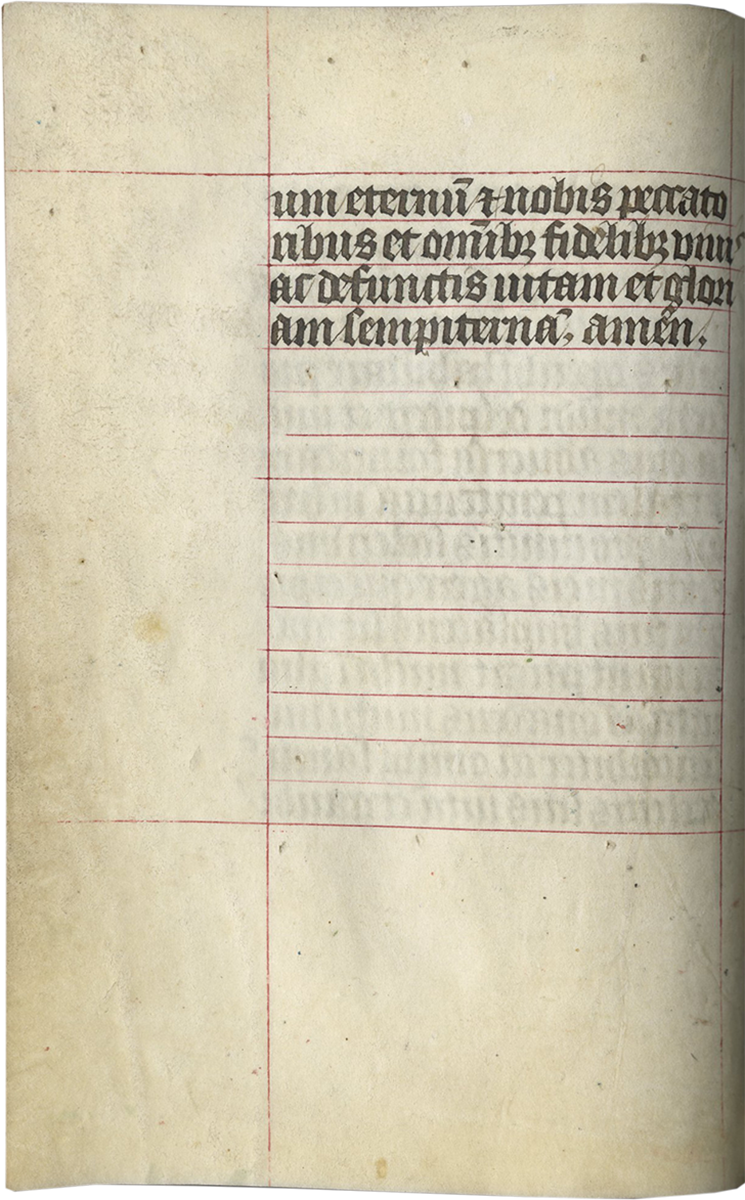 um eternū ⁊ nobis peccato
ribus et om̄ibꝫ fidelibꝫ viui
ac defunctis uitam et glori
am sempiternā, amen̄.